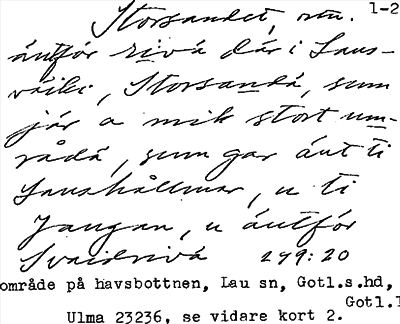 Storsandet, m. 1-2
äutfór rivá där i Laus-
väiki, Storsandá, sum
jär a mik stort um-
rådá, sum gar äut ti
Laushållmar, u ti
Jaugan, u äutfór
Svaidrivá 249:20
område på havsbottnen, Lau sn, Gotl.s.hd,
Gotl.l
Ulma 23236, se vidare kort 2.